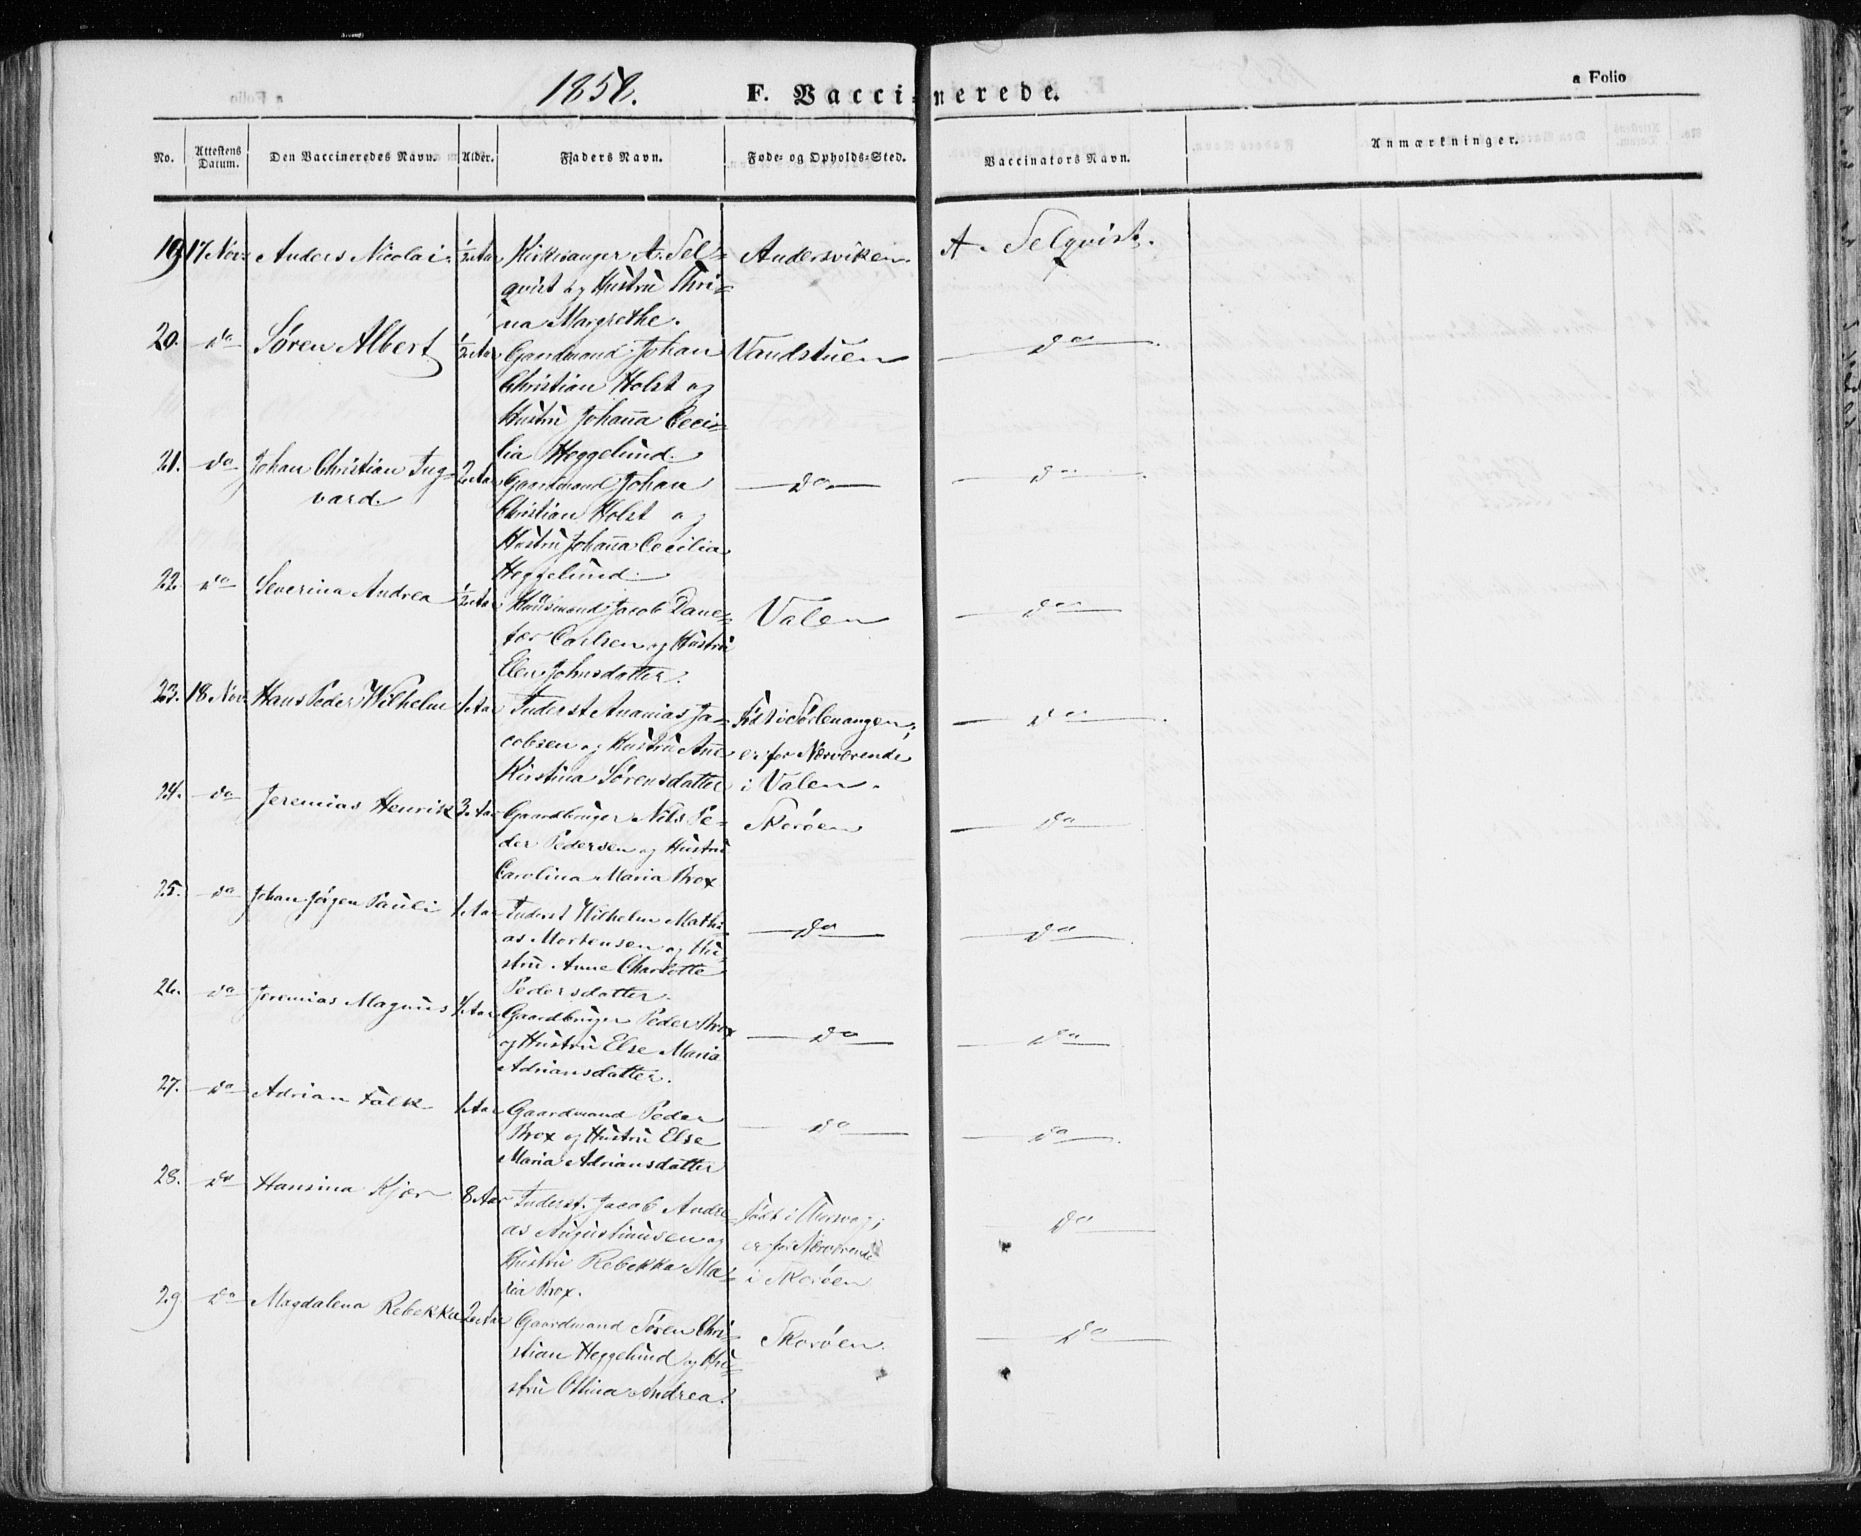 1858. F. Vaccinerede. a Folio
No. Attestens Datum. Den Vaccineredes Navn. Alder. Faders Navn. Føde- og Opholds-Sted. Vaccinators Navn. Anmærkninger.
19 17 Nov. Anders Nicolai. ½ Aar Kirkesanger A. Sel- Andersviken. A. Selqvist.
qvist og Hustru Thri-
na Margrethe.
20. do Søren Albert ½ Aar Gaardmand Johan Vandstuen do
Christian Holst og
Hustru Johanna Ceci-
lia Heggelund.
21. do Johan Christian Ing- 2 Aar Gaardmand Johan do do
vard. Christian Holst og
Hustru Johanna Cecilia
Heggelund.
22. do Severina Andrea ½ Aar Huusmand Jacob Dane- Valen do
Carlsen og Hustru
Elen Johnsdatter.
23. 18 Nov. Hans Peder Wilhelm 1 Aar Inderst Ananias Ja- Født i Sørlenangen; do
cobsen og Hustru Anne er for Nærværende
Kirstina Sørensdatter i Valen.
24. do Jeremias Henrik 3 Aar Gaardbruger Nils Pe- Skorøen do
der Pedersen og Hustru
Carolina Maria Brox
25. do Johan Jørgen Pauli 1 Aar Inderst Wilhelm Mathi- do do
as Mortensen og Hu-
stru Anne Charlotte
Pedersdatter.
26. do Jeremias Magnus 4 Aar Gaardbruger Peder Brox do do
og Hustru Else Maria
Adriansdatter.
27. do Adrian Falk 1 Aar Gaardmand Peder do do
Brox og Hustru Else
Maria Adriansdatter
28. do Hansina Kjær 8 Aar Inderst. Jacob Andre- Født i Thorsvaag; do
as Augustinusen og er for Nærværende
Hustru Rebekka Ma- i Skorøen
ria Brox.
29 do Magdalena Rebekka 2 Aar Gaardmand Søren Chri- Skorøen. do
stian Heggelund og Hu-
stru Ollina Andrea.